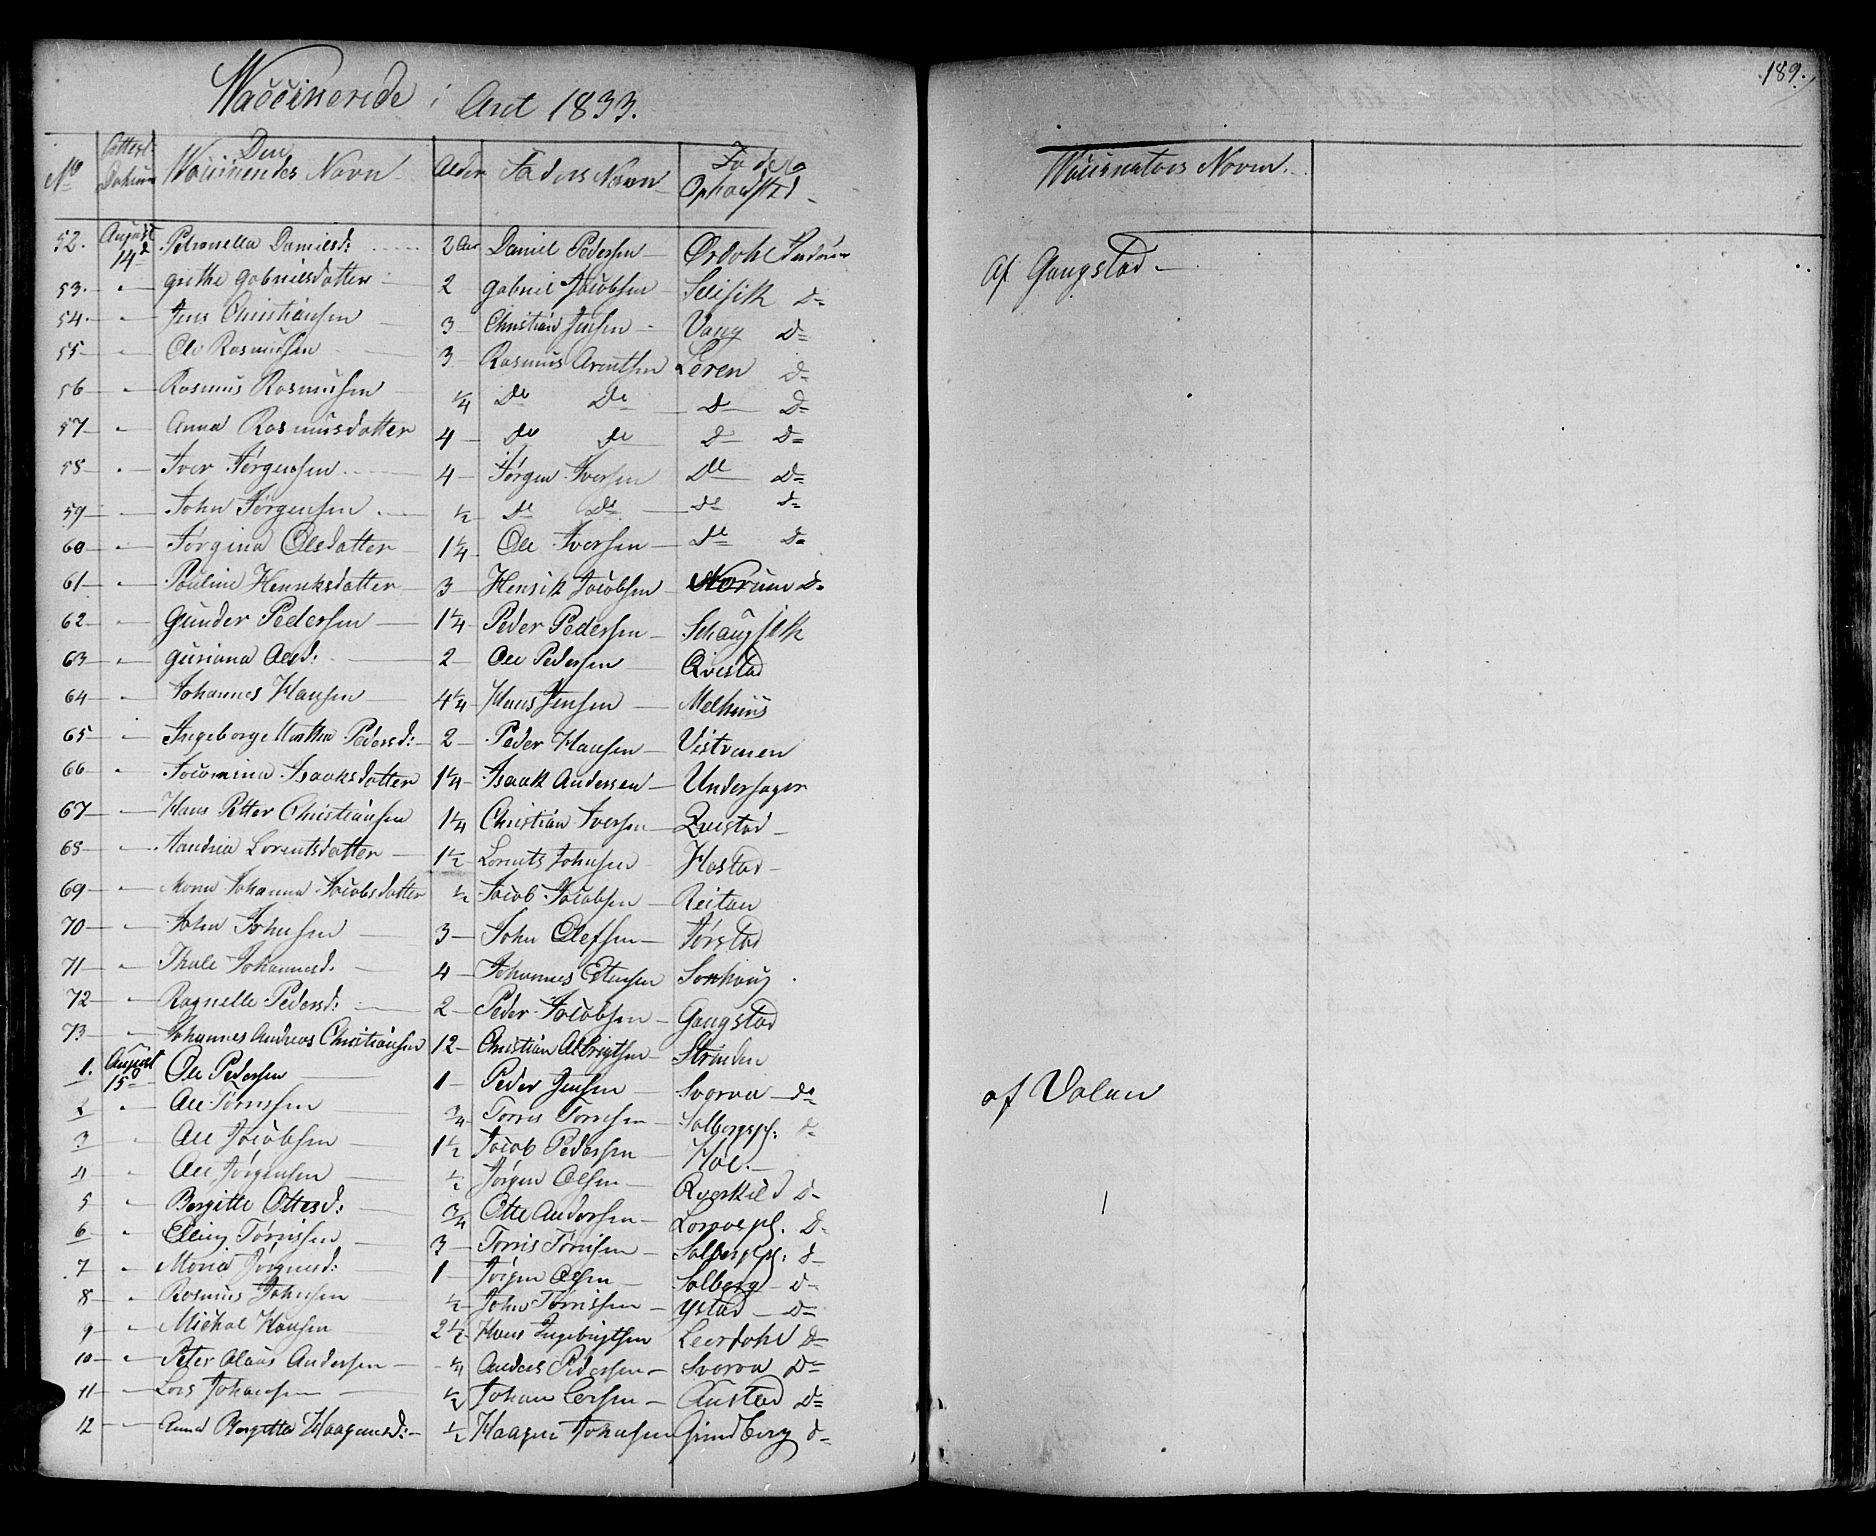 Vaccinerede i Aaret 1833.
189.
No Attest Datum Den Vaccineredes Navn Alder Faders Navn Føde og Opholdsted Vaccinators Navn
52. August 14d Petronella Danielsd: 2 Aar Daniel Pedersen Ordahl Inderøen af Gangstad
53. " Grethe Gabrielsdatter 2 Gabriel Jacobsen D=
54. " Jens Christiansen 3 Christian Jensen Vang D=
55 " Ole Rasmusen 3 Rasmus Arentsen Leren D=
56 " Rasmus Rasmusen 1/4 Do Do D D=
57 " Anna Rasmusdatter 4 Do Do D D=
58 " Iver Jørgensen 4 Jørgen Iversen Do D=
59 " John Jørgensen 1/2 Do Do Do D=
60 " Jørgina Olsdatter 1 1/4 Ole Iversen Do D=
61 " Pauline Henriksdatter 3 Henrik Jacobsen Norum D=
62 " Gunder Pedersen 1 1/4 Peder Pedersen
63 " Guriana Olsd: 2 Ole Pedersen Qvistad
64 " Johannes Hansen 4 1/4 Hans Jensen Melhuus
65 " Ingeborg Martha Pedersd: 2 Peder Hansen Vistvenen
66 " Jacomina Isaaksdatter 1 1/4 Isaak Andersen Undersager
67 " Hans Petter Christiansen 1 1/4 Christian Iversen Qvistad
68 " Lorentsdatter 1 1/2 Lorents Johnsen Hastad
69 " Johanna Jacobsdatter 1/2 Jacob Jacobsen Reitan
70 " John Johnsen 3 John Olefsen Jørstad
71 " Thale Johannesd. 4 Johannes
72 " Ragnelle Pedersd: 2 Peder Jacobsen Gangstad
73 " Johannes Andreas Christiansen 12 Christian Albrigtsen Strinden
1. August 15d Ole Pedersen 1 Peder Jensen Svorva do af Valan
2 " Ole Tørrissen 3/4 Torris Torrisen Solbergspl: d=
3 " Ole Jacobsen 1 1/2 Jacob Pedersen Hol.
4 " Ole Jørgensen 1/2 Jørgen Olsen Qverkild D=
5 " Bergitte Ottesd: 3/4 Otte Andersen D=
6 " Elling Tørrissen 3 Torris Tørrisen Solbergspl: d
7 " Maria Jørgensd: 1 Jørgen Olsen Solberg D=
8 " Rasmus Johnsen 1/2 John Tørrissen Ystad D=
9 " Michal Hansen 2 1/2 Hans Ingebrigtsen Leerdahl D=
10 " Peter Olaus Andersen 1/4 Anders Pedersen Svorva D=
11 " Lars Johansen 1/2 Johan Larsen Austad D=
12 " Anna Bergitta Haagensd: 1/2 Haagen Johnsen Grindberg d=